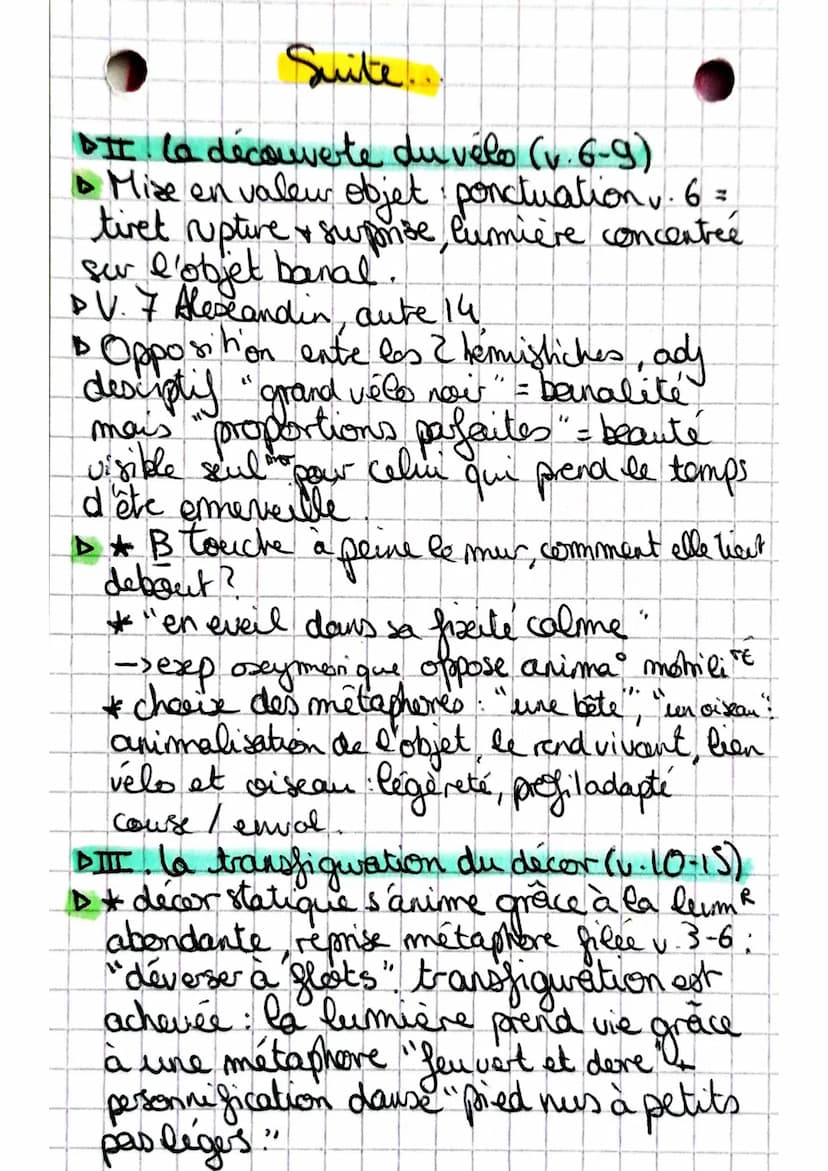 Suite...
▷ II. La découverte du vélo (v.6-9)
▷ Mise en valeur objet : ponctuation v. 6 =
tiret rupture + surprise, lumière concentrée
sur l'objet banal.
▷ V. 7 Alexandin, autre 14
▷ Opposition entre les 2 hémistiches, adj
descriptif "grand vélo noir" = banalité
mais "proportions parfaites" = beauté
visible seulmnt pour celui qui prend le temps
d'être emerveille.
▷ * B touche à peine le mur, comment elle tient
debout?
* "en eveil dans sa fixité calme"
-> exp oxymorique oppose anima° mobilité
* choix des métaphores : "une bête", "un oiseau":
animalisation de l'objet, le rend vivant, lien
vélo et oiseau : légèreté, profil adapté
course / envol.
▷ III. La transfiguration du décor (v.10-15)
▷ * décor statique s'anime grâce à la lumR
abondante, reprise métaphore filée v.3-6 :
"déverser à flots". transfiguration est
achevée : la lumière prend vie grâce
à une métaphore "feu vert et dore" +
personnification danse "pied nus à petits
pas légers."